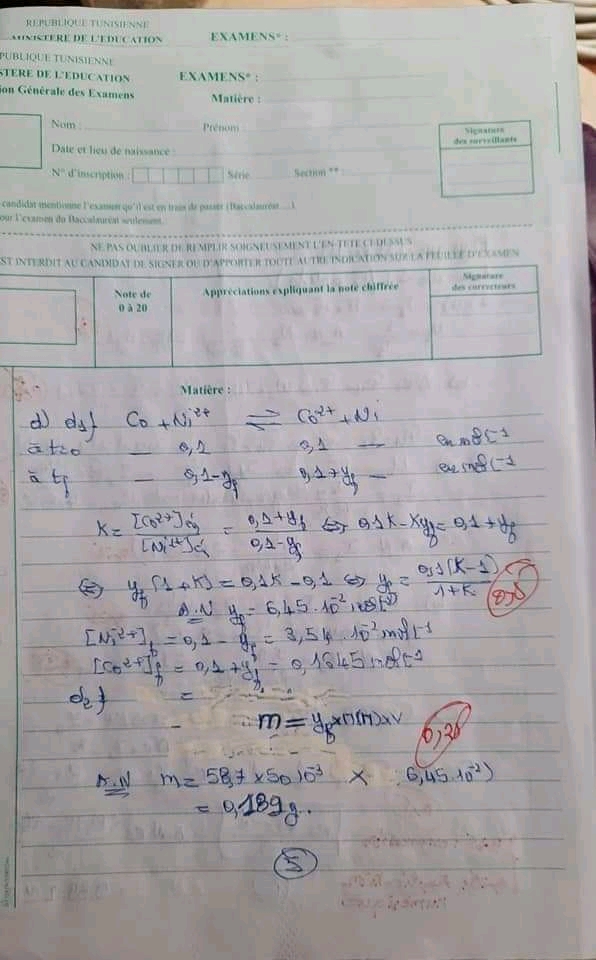 REPUBLIQUE TUNISIENNE
MINISTERE DE L'EDUCATION EXAMENS* :
PUBLIQUE TUNISIENNE
STERE DE L'EDUCATION EXAMENS* :
ion Générale des Examens Matière :
Nom : Prénom :
Signature des surveillants
Date et lieu de naissance :
N° d'inscription : Série Section ** :
candidat mentionne l'examen qu'il est en train de passer (Baccalauréat ....).
our l'examen du Baccalauréat seulement.
NE PAS OUBLIER DE REMPLIR SOIGNEUSEMENT L'EN-TETE CI-DESSUS
EST INTERDIT AU CANDIDAT DE SIGNER OU D'APPORTER TOUTE AUTRE INDICATION SUR LA FEUILLE D'EXAMEN
Note de 0 à 20 Appréciations expliquant la note chiffrée Signature des correcteurs
Matière :
d) d1} Co + Ni2+ ⇌ Co2+ + Ni
à t=0 — 0,1 0,1 — en mol L-1
à tf — 0,1-yf 0,1+yf — en mol L-1
K = [Co2+]éq / [Ni2+]éq = 0,1+yf / 0,1-yf ⇔ 0,1K - Kyf = 0,1 + yf
⇔ yf (1+K) = 0,1K - 0,1 ⇔ yf = 0,1(K-1) / 1+K
A.N yf = 6,45.10-2 mol L-1
[Ni2+]f = 0,1 - yf = 3,54.10-2 mol L-1
[Co2+]f = 0,1 + yf = 0,1645 mol L-1
d2} =
m = yf x M(Ni) x V
A.N m = 58,7 x 50 10-3 x 6,45.10-2)
= 0,189 g..
5